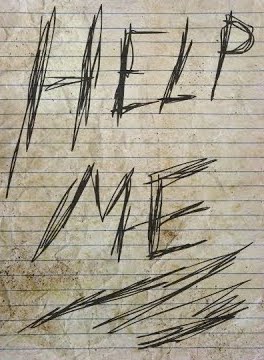 HELP
ME